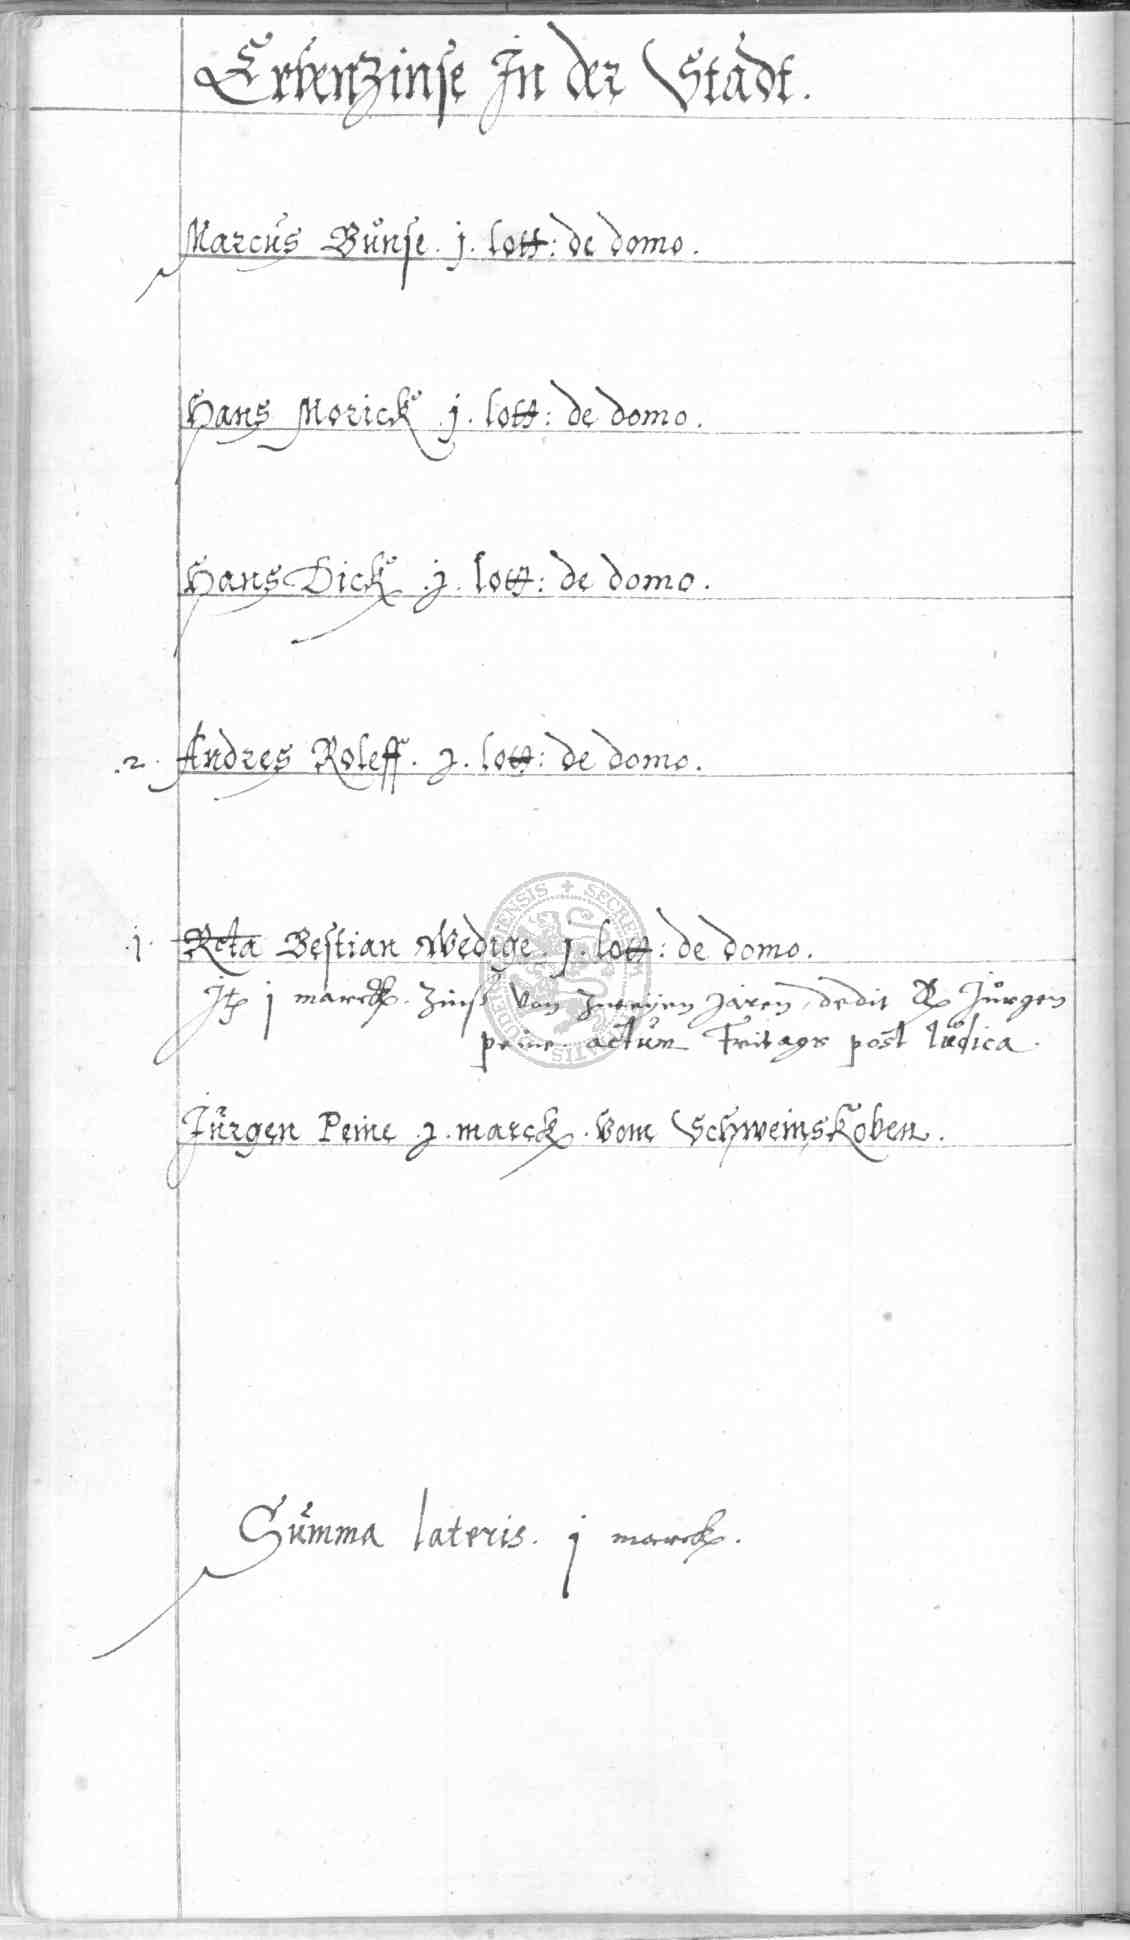 Erbenzinse Jn der Stadt.
Marcus Bunse . j . lott : de domo .
Hans Morick . j . lott : de domo .
Hans Dick . j . lott : de domo .
.2. Andres Roleff . j . lott : de domo .
.j. Rcta Bestian Wedige . j . lott : de domo .
Jtem j marck . Zinß von zweyen Jaren, dedit Jurgen
peine . actum Freitags post Iudica .
Jurgen Peine . j . marck . vom Schweinskoben .
Summa lateris . j marck .